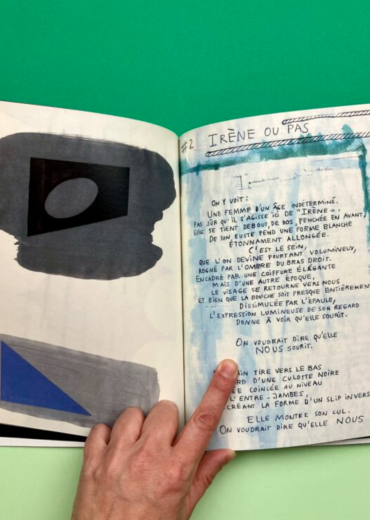 #2 IRÈNE OU PAS
ON Y VOIT :
UNE FEMME D'UN ÂGE INDÉTERMINÉ.
PAS SÛR QU'IL S'AGISSE ICI DE "IRÈNE".
ELLE SE TIENT DEBOUT, DE DOS, PENCHÉE EN AVANT,
DE SON BUSTE PEND UNE FORME BLANCHE
ÉTONNAMENT ALLONGÉE.
C'EST LE SEIN,
QUE L'ON DEVINE POURTANT VOLUMINEUX,
ROGNÉ PAR L'OMBRE DU BRAS DROIT.
ENCADRÉ PAR UNE COIFFURE ÉLÉGANTE
MAIS D'UNE AUTRE ÉPOQUE,
LE VISAGE SE RETOURNE VERS NOUS
ET BIEN QUE LA BOUCHE SOIT PRESQUE ENTIÈREMEN
DISSIMULÉE PAR L'ÉPAULE,
L'EXPRESSION LUMINEUSE DE SON REGARD
DONNE À VOIR QU'ELLE SOURIT.
ON VOUDRAIT DIRE QU'ELLE
NOUS SOURIT.
TIRE VERS LE BAS
D'UNE CULOTTE NOIRE
COINCÉE AU NIVEAU
L'ENTRE-JAMBES,
CRÉANT LA FORME D'UN SLIP INVERS
ELLE MONTRE SON CUL.
ON VOUDRAIT DIRE QU'ELLE NOUS